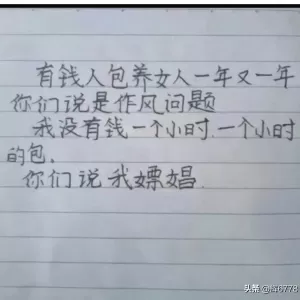 有钱人包养女人一年又一年
你们说是作风问题
我没有钱一个小时.一个小时
的包,
你们说我嫖娼.
头条 @陆6778